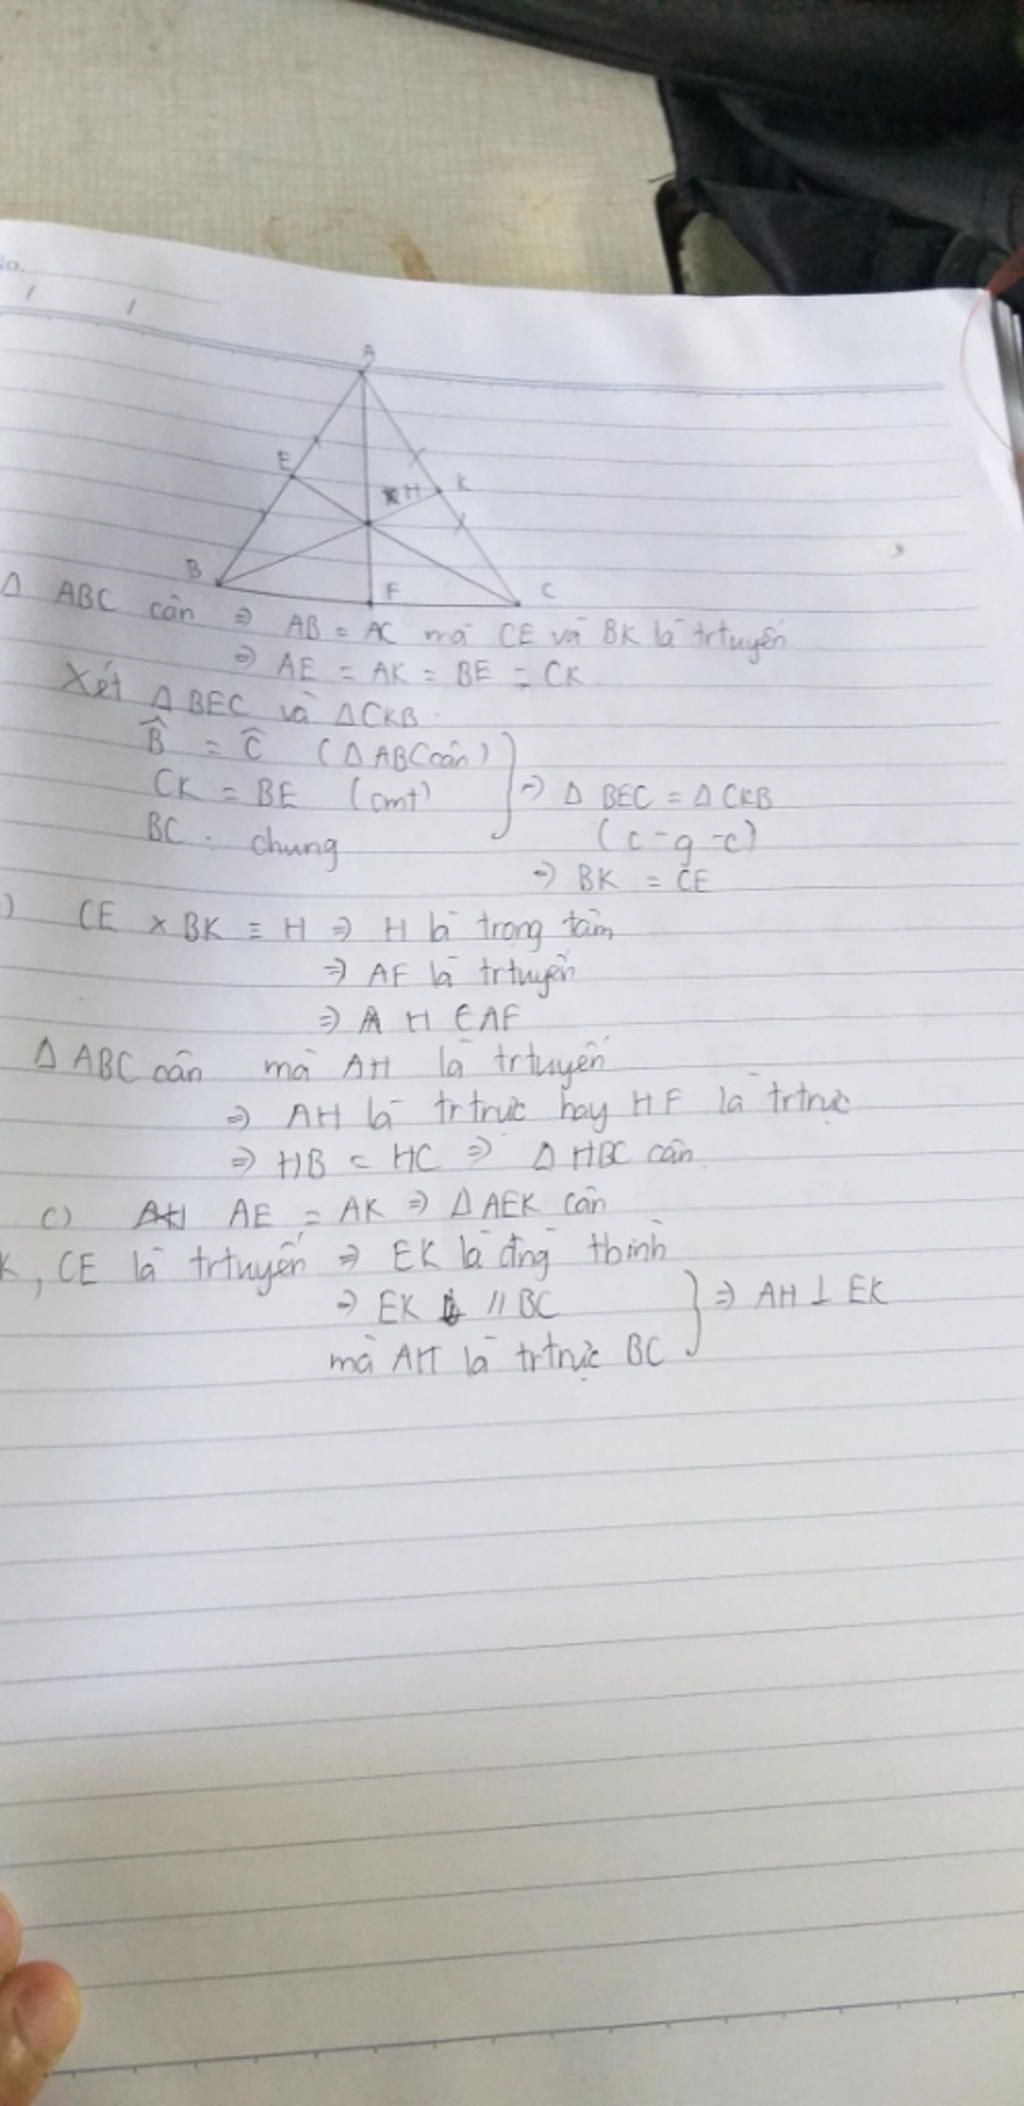 No.
A
E
H K
B F C
Δ ABC cân ⇒ AB = AC mà CE và BK là trtuyến
⇒ AE = AK = BE = CK
Xét Δ BEC và Δ CKB
B̂ = Ĉ (Δ ABC cân)
CK = BE (cmt) ⇒ Δ BEC = Δ CKB
BC : chung (c-g-c)
⇒ BK = CE
) CE × BK ≡ H ⇒ H là trọng tâm
⇒ AF là trtuyến
⇒ H ∈ AF
Δ ABC cân mà AH là trtuyến
⇒ AH là trtrực hay HF là trtrực
⇒ HB = HC ⇒ Δ HBC cân
c) AE = AK ⇒ Δ AEK cân
K, CE là trtuyến ⇒ EK là đng tbình
⇒ EK // BC ⇒ AH ⊥ EK
mà AH là trtrực BC